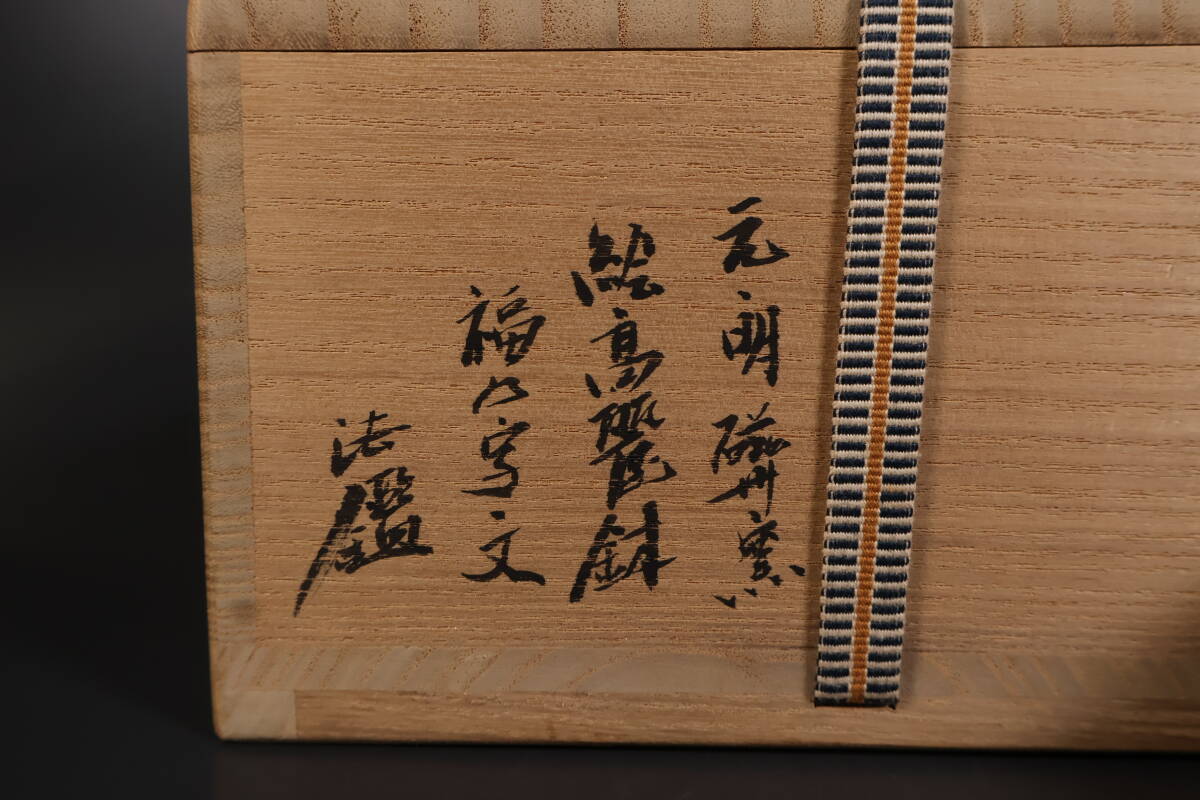 元明磁州窯
絵高麗鉢
福の字文
法鑑